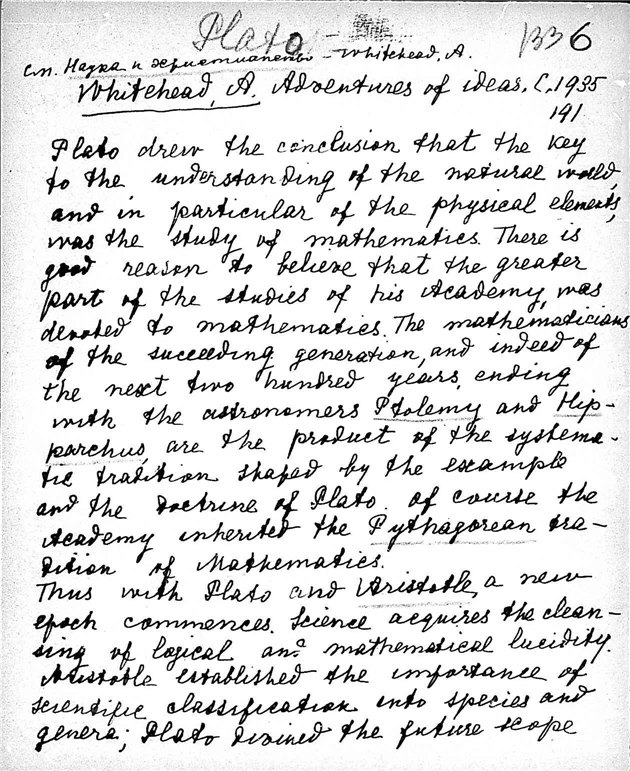 Plato
1336
См. Наука и христианство - Whitehead, A.
Whitehead, A. Adventures of ideas. C, 1935
191
Plato drew the conclusion that the key
to the understanding of the natural world,
and in particular of the physical elements,
was the study of mathematics. There is
good reason to believe that the greater
part of the studies of his Academy, was
devoted to mathematics. The mathematicians
of the succeeding generation, and indeed of
the next two hundred years, ending
with the astronomers Ptolemy and Hip-
parchus, are the product of the systema-
tic tradition shaped by the example
and the doctrine of Plato. of course the
Academy inherited the Pythagorean tra-
dition of Mathematics.
Thus with Plato and Aristotle, a new
epoch commences. Science acquires the clean-
sing of logical and mathematical lucidity.
Aristotle established the importance of
scientific classification into species and
genera; Plato divined the future scope